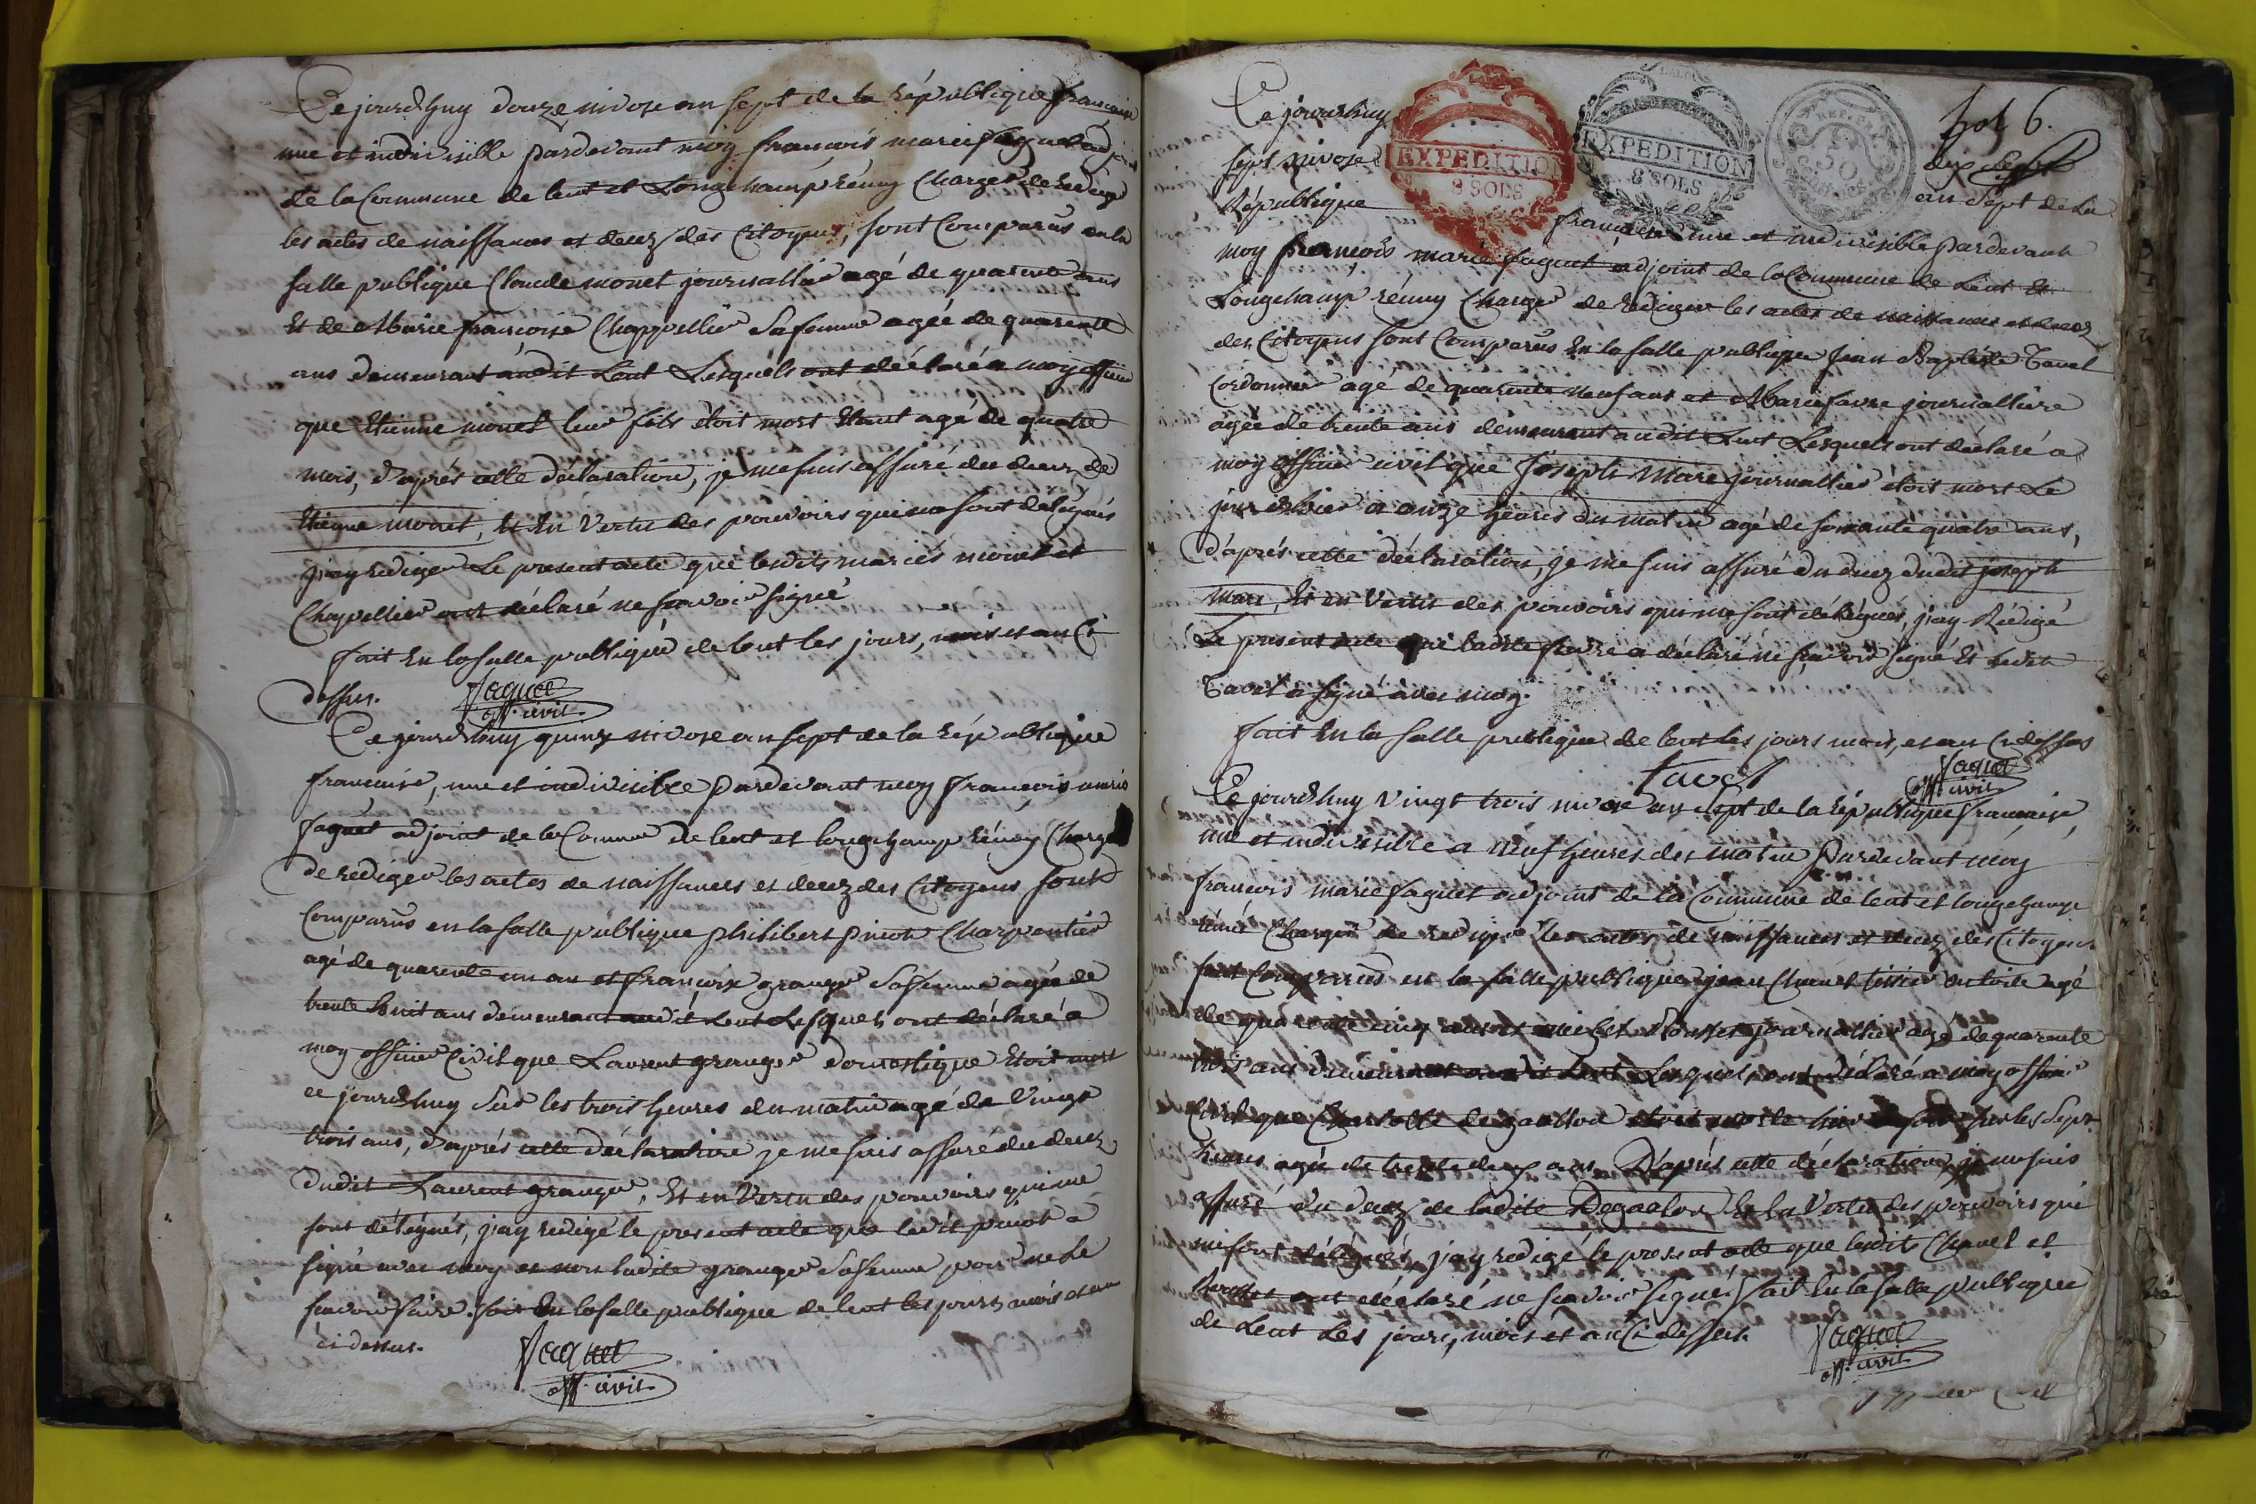 Ce jourdhuy douze nivose an sept de la République francaise
une et indivisible pardevant moy francois marie faguet adjoint
de la Commune de lent et Longchamp réuny Chargé de redigé
les actes de naissances et decez des Citoyens, sont Comparus en la
salle publique Claude monet journallier agé de quarente ans
Et de Marie francoise Chappellier Safemme agée de quarente
ans demeurant audit Lent Lesquels ont déclaré a moy officier
que Etienne monet leur fils étoit mort Etant agé de quatre
mois, d'aprés cette déclaration, je me suis assuré du decez de
Etienne monet, Et En Vertu des pouvoirs qui me sont delégués
j'ay redigé Le present acte que lesdits mariés monet et
Chapellier ont déclaré ne scavoir signé
fait En la salle publique de lent les jours, mois et an Ci
dessus. faguet
off. civil.
Ce jourdhuy quinze nivose an sept de la République
francaise, une et indivisible pardevant moy francois marie
faguet adjoint de la Comune de lent et longchamp réuny Chargé
de rediger les actes de naissances et decez des Citoyens sont
Comparus en la salle publique philibert pinot Charpentier
agé de quarente un an et francoise granger Safemme agée de
trente huit ans demeurant audit Lent Lesquels ont déclaré a
moy officier Civil que Laurent granger domestique Etoit mort
ce jourdhuy Sur les trois heures du matin agé de Vingt
trois ans, d'aprés cette déclaration je me suis assuré du decez
dudit Laurent granger, Et en Vertu des pouvoirs qui me
sont délégués, j'ay redigé le present acte que ledit pinot a
signé avec moy et non ladite granger Safemme pour ne Le
scavoir faire. fait En la salle publique de lent les jours mois et an
ci dessus.
faguet
off. civil.
fol 6.
Ce jourdhuy dix sept
sept nivose an Sept de La
République
EXPEDITION
8 SOLS
EXPEDITION
8 SOLS
50
francaise une et indivisible pardevant
moy francois marie faguet adjoint de la Commune de Lent Et
Longchamp réuny Chargé de rediger les actes de naissances et decez
des Citoyens sont Comparus En la salle publique Jean Baptiste Tavel
Cordonnier agé de quarente neuf ans et Marie favre journalliere
agée de trente ans demeurant audit Lent Lesquels ont déclaré a
moy officier civil que Joseph Mare journallier étoit mort Le
jour d'hier a onze heures du matin agé de soixante quatre ans,
D'aprés cette déclaration, je me suis assuré du decez dudit joseph
mare, Et en Vertu des pouvoirs qui me sont délégués, j'ay Rédigé
Le present acte que ladite favre a déclaré ne scavoir signé Et ledit
Tavel a signé avec moy.
fait En la salle publique de lent les jours mois, et an Cidessus
Tavel faguet
off. civil
Ce jourdhuy vingt trois nivose an sept de la République francaise,
une et indivisible a neuf heures des matin Pardevant moy
francois marie faguet adjoint de la Commune de lent et longchamp
réuni Chargé de rediger les actes de naissances et decez des Citoyens
sont Comparus en la salle publique jean Chanel tissier en toile agé
de quarente cinq ans et journallier agé de quarente
trois ans demeurant audit Lent Lesquels ont déclaré a moy officier
Civil que Charlotte degaallon étoit morte hier soir sur les Sept
heures agée de trente deux ans D'aprés cette déclaration je me suis
assuré du decez de ladite Degaalon Et En Vertu des pouvoirs qui
me sont délégués, j'ay redigé le present acte que lesdits Chanel et
ont déclaré ne scavoir signé, fait En la salle publique
de Lent Les jours, mois et an Ci dessus.
faguet
off. civil